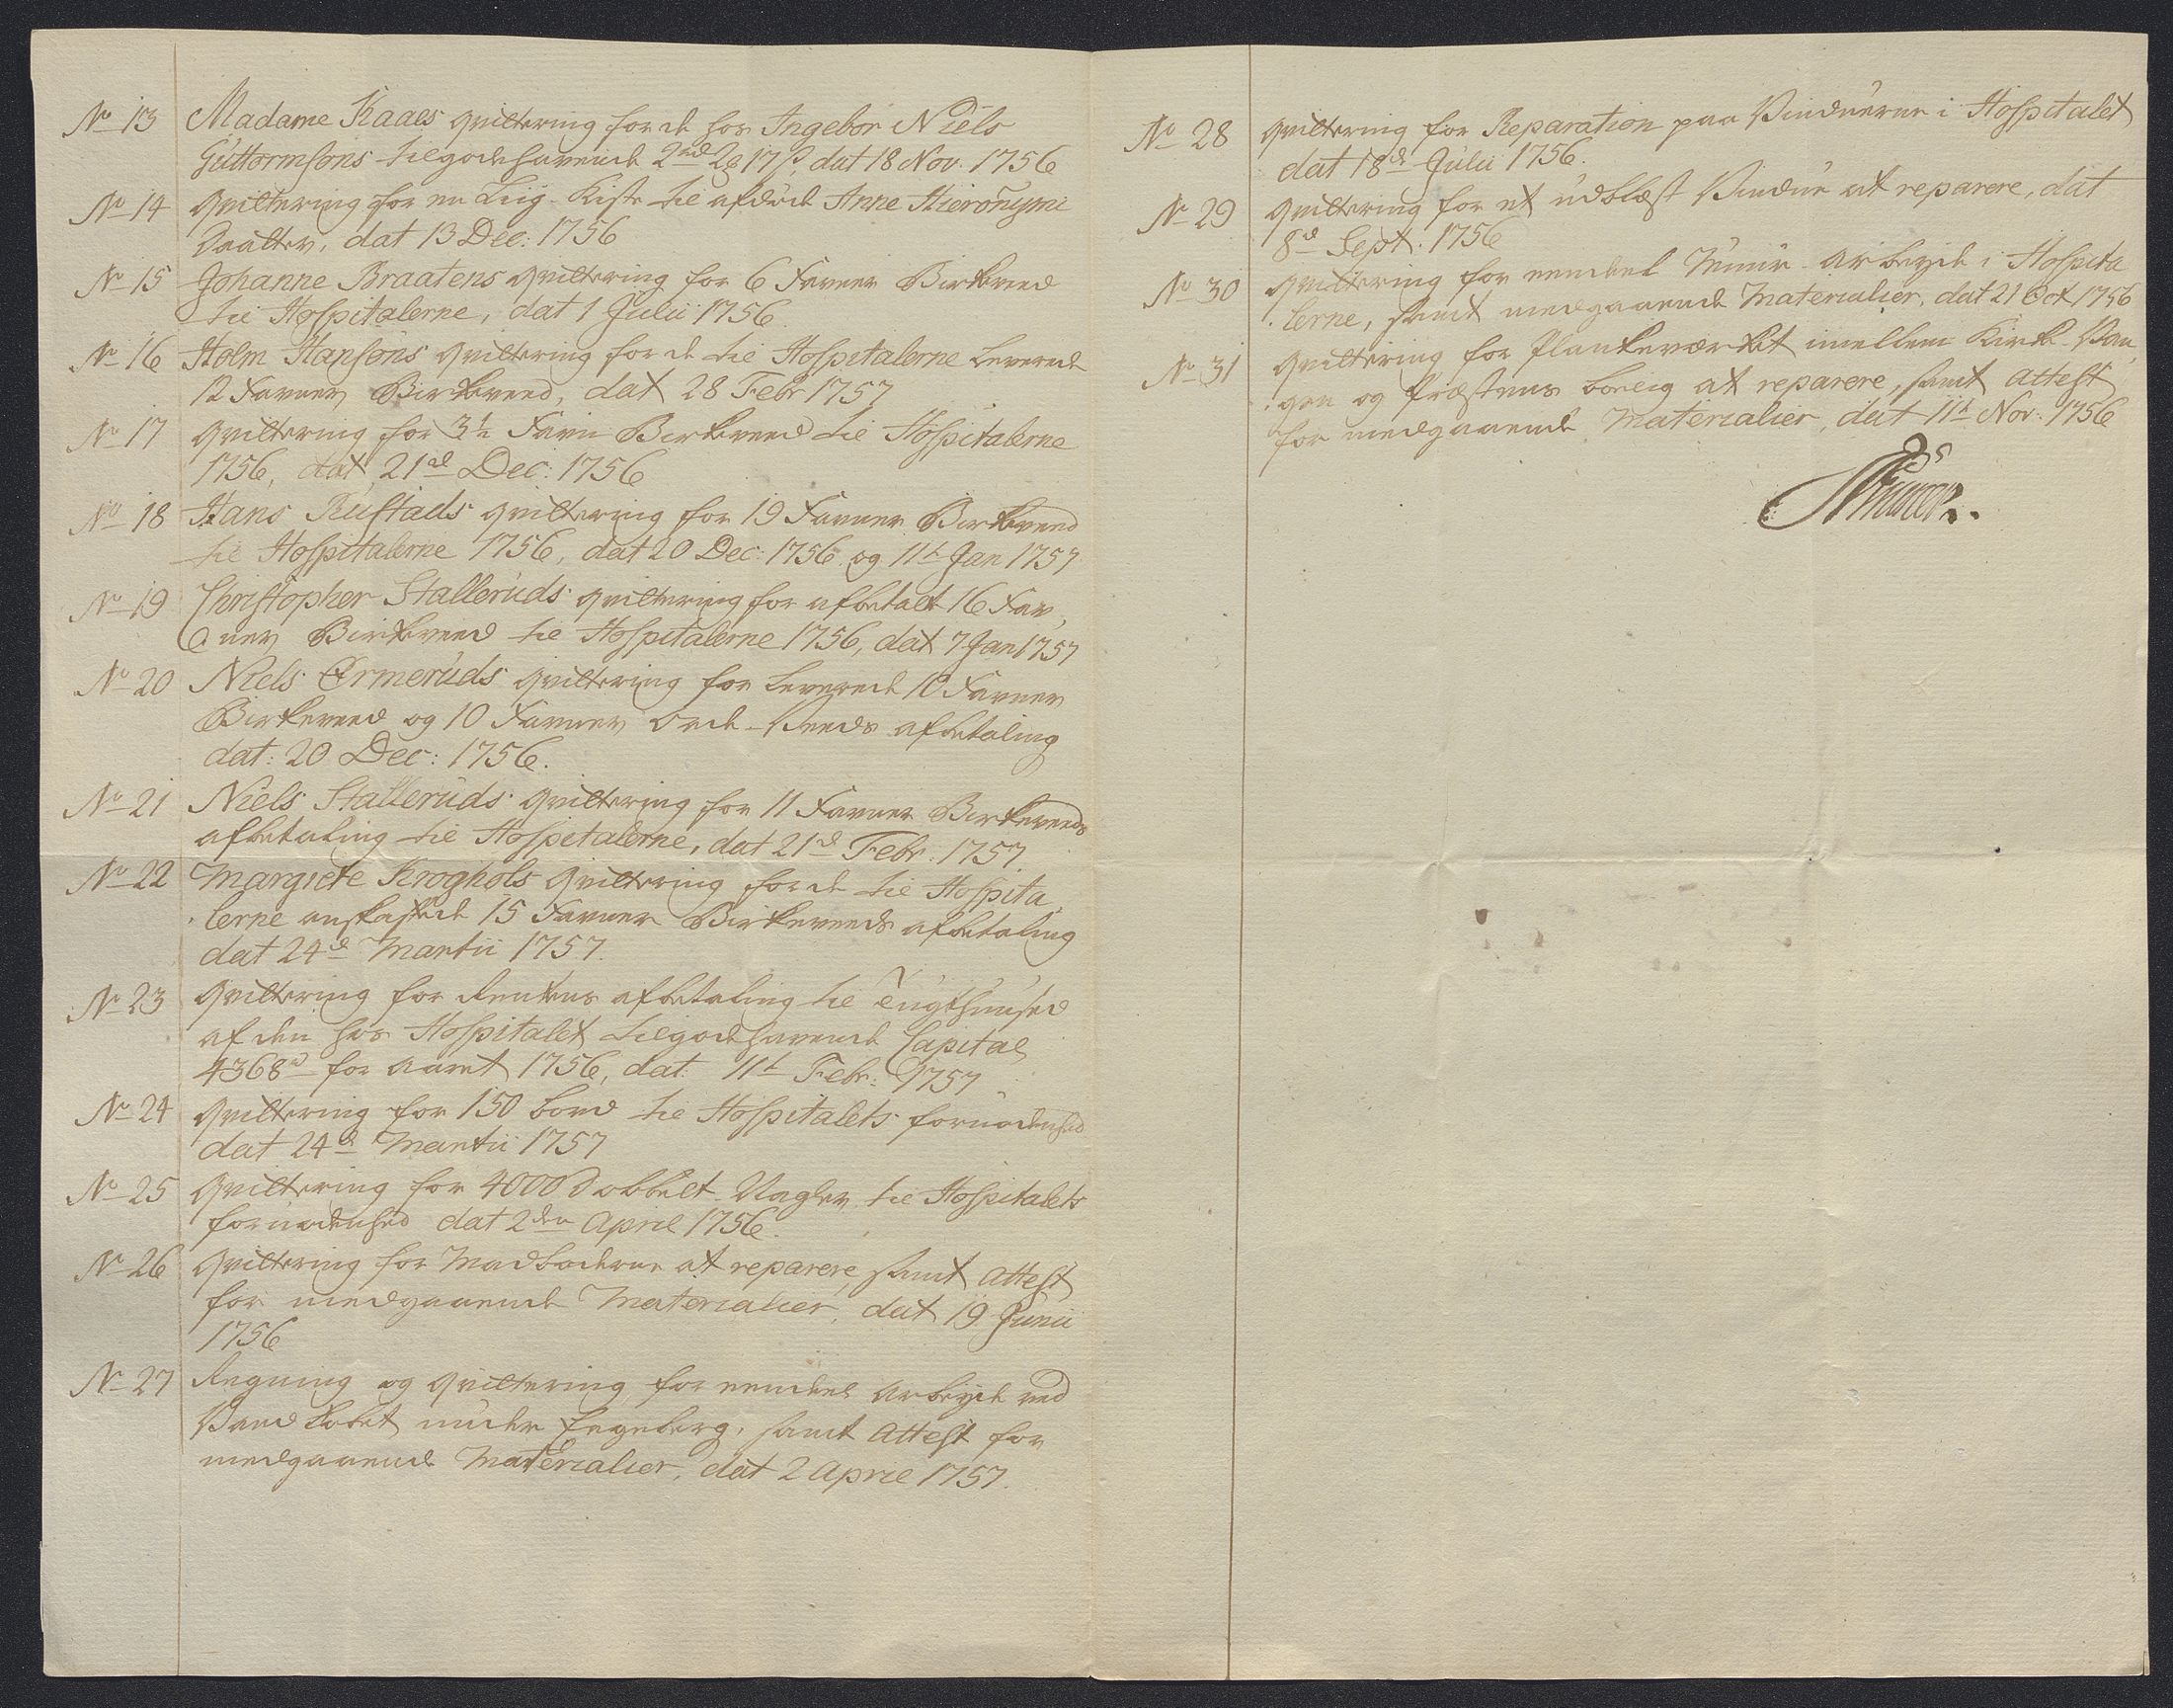 No 13 Madame Kaaes qvittering for de hos Ingebor Niels
Guttormsons tilgodehavende 2rd 2 17 ß, dat 18 Nov. 1756
No 14 qvittering for en Liig-Kiste til afdøde Anne Hieronymi
Daatter, dat 13 Dec: 1756
No 15 Johanne Braatens qvittering for 6 Favner Birkeved
til Hospitalerne, dat 1 Julii 1756
No 16 Holm Hansøns qvittering for de til Hospitalerne Leverede
12 Favner Birkeved, dat 28 Febr 1757
No 17 qvittering for 3½ Favn Birkeveed til Hospitalerne
1756, dat 21de Dec: 1756
No 18 Hans Rustads qvittering for 19 Favner Birkeveed
til Hospitalerne 1756, dat 20 Dec: 1756 og 11t Jan 1757
No 19 Christopher Stalleruds qvittering for afbetalt 16 Fav,
ner Birkeveed til Hospitalerne 1756, dat 7 Jan 1757
No 20 Niels Ørmeruds qvittering for Leverede 10 Favner
Birkeveed og 10 Favner Orde-Veeds afbetaling
dat: 20 Dec: 1756.
No 21 Niels Stalleruds qvittering for 11 Favner Birkeveeds
afbetaling til Hospitalerne, dat 21d Febr. 1757
No 22 Margrete Kroghols qvittering for de til Hospita,
lerne anskaffede 15 Favner Birkeveeds afbetaling
dat 24d Martii 1757.
No 23 qvittering for Rentens afbetaling til Tugthuused
af den hos Hospitalet tilgodehavende Capital
4368rd for aaret 1756, dat. 11t Febr: 1757
No 24 qvittering for 150 bord til Hospitalets fornødenhed
dat 24d Martii 1757
No 25 qvittering for 4000 Dobbelt-Nagler til Hospitalets
fornødenhed dat 2den April 1756.
No 26 qvittering for Madboderne at reparere, samt Attest
for medgaaende Materialier, dat 19 Junii
1756
No 27 Regning og qvittering for eendeel arbeyde ved
Vand under Egeberg, samt Attest for
medgaaende Materialier, dat 2 April 1757.
No 28 qvittering for Reparation paa Vinduerne i Hospitalet
dat 18d Julii 1756.
No 29 qvittering for et udblæst Vindue at reparere, dat
8d Sept. 1756
No 30 qvittering for eendeel Muur-arbeyde i Hospita
lerne, samt medgaaende Materialier, dat 21 Oct 1756
No 31 qvittering for Plankeværket imellem Kirke-Van,
gen og Præstens bolig at reparere, samt Attest
for medgaaende Materialier, dat 11t Nov: 1756